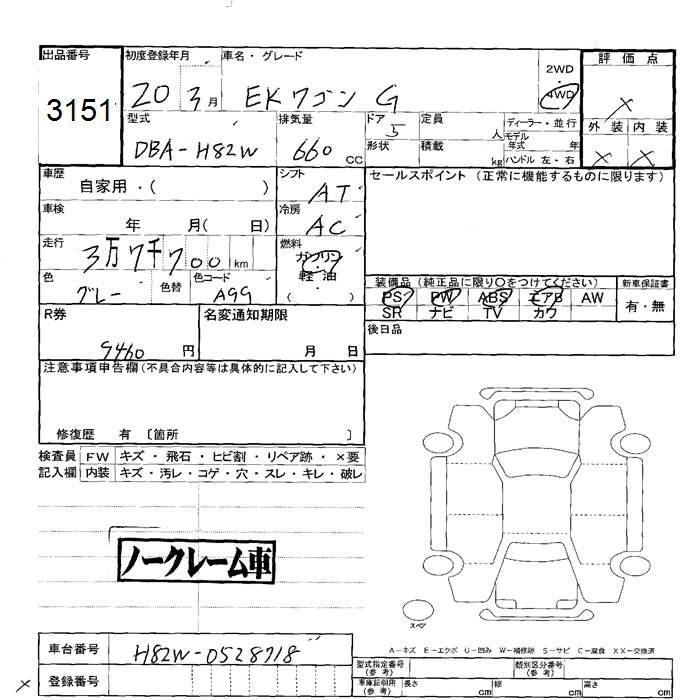 出品番号
3151
初度登録年月
20 3月
車名・グレード
EKワゴン G
2WD
・
4WD
評価点
×
外装 内装
× ×
型式
DBA-H82W
排気量
660 CC
ドア
5
形状
定員
人
積載
kg
ディーラー・並行
モデル
年式 年
ハンドル 左・右
車歴
自家用・( )
シフト
AT
セールスポイント (正常に機能するものに限ります)
車検
年 月( 日)
冷房
AC
走行
3万7千700 km
燃料
ガソリン
・
軽油
( )
色
グレー
色替
色コード
A99
装備品 (純正品に限り○をつけてください)
新車保証書
PS PW ABS エアB AW
SR ナビ TV カワ
有・無
R券
9460 円
名変通知期限
月 日
後日品
注意事項申告欄 (不具合内容等は具体的に記入して下さい)
修復歴 有 〔箇所 〕
検査員
記入欄
FW キズ・飛石・ヒビ割・リペア跡・×要
内装 キズ・汚レ・コゲ・穴・スレ・キレ・破レ
ノークレーム車
スペア
A-キズ E-エクボ U-凹み W-補修跡 S-サビ C-腐食 XX-交換済
車台番号
H82W-0528718
登録番号
×
型式指定番号
(参考)
類別区分番号
(参考)
車庫証明用
(参考)
長さ cm 幅 cm 高さ cm